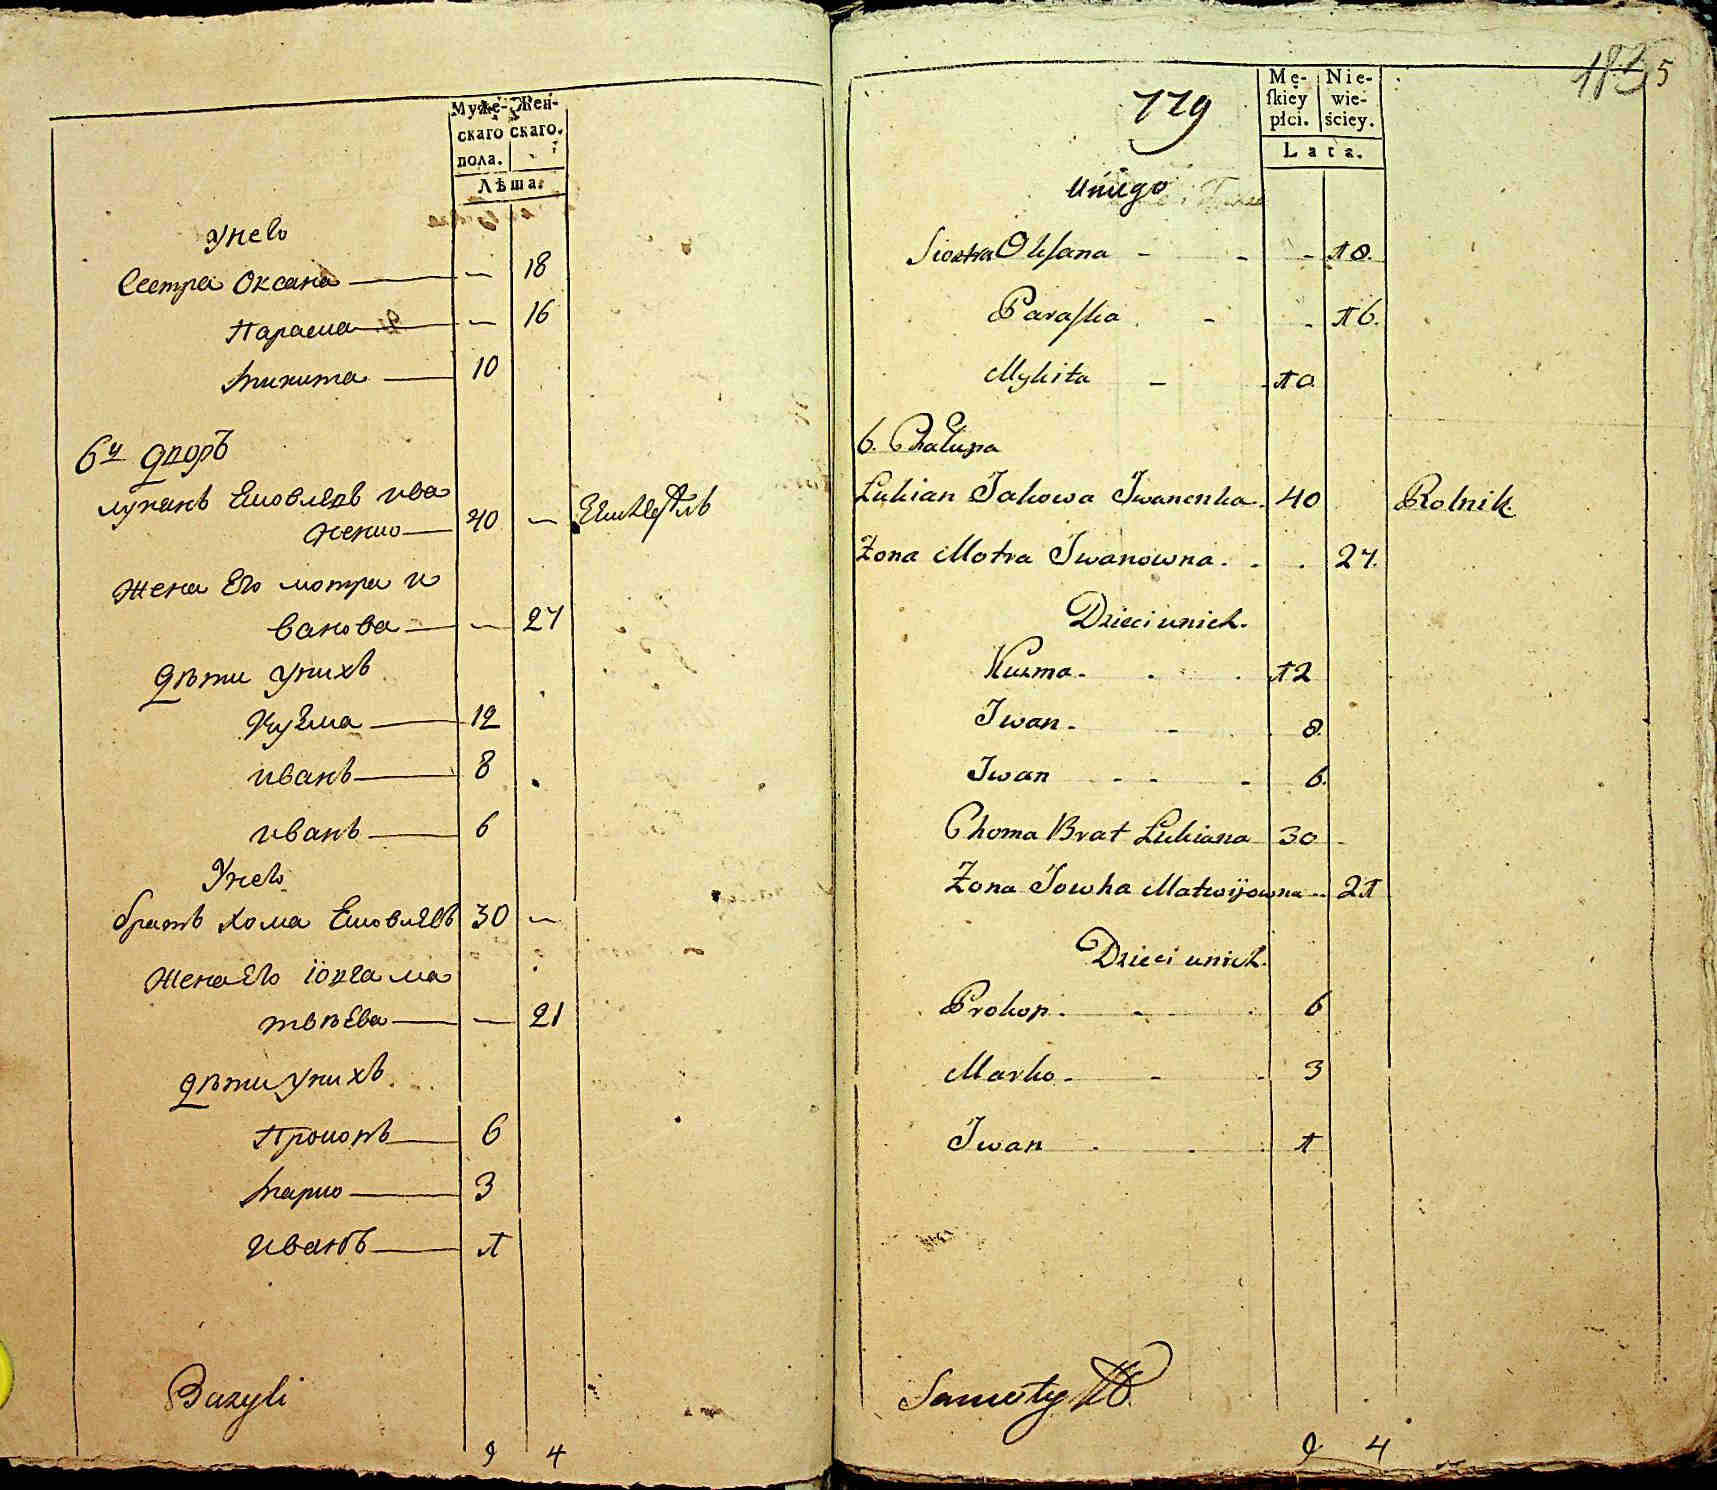 Муже- Жен-
скаго скаго.
пола.
Лѣта.
У него
Сестра Оксана — — 18
Параска — — 16
Микита — 10
6й дворъ
Лукянъ Яковлевъ Ива
ненко — 40 —
Жена Его мотра и
ванова — — 27
Дѣти у нихъ
Кузма — 12
иванъ — 8
иванъ — 6
У него
братъ Хома Яковлевъ 30 —
Жена Его Іовга ма
твѣева — — 21
Дѣти у нихъ
Прокопъ — 6
Марко — 3
Иванъ — 1
Bazyli
9 4
119
5
Mę- Nie-
ſkiey wie-
płci. ściey.
Lata.
U niego
Siostra Oksana - - - 18.
Paraſka - - 16.
Mykita - - 10.
6. Chałupa
Lukian Jakowa Iwanenka. 40 Rolnik.
Żona Motra Iwanowna. . . 27.
Dzieci unich.
Kuzma. . . 12
Iwan. - 8.
Iwan - - - 6.
Choma Brat Lukiana 30 -
Żona Jowha Matwijowna - - 21
Dzieci unich.
Prokop. - . 6
Marko - - - 3
Iwan - . . 1
9 4